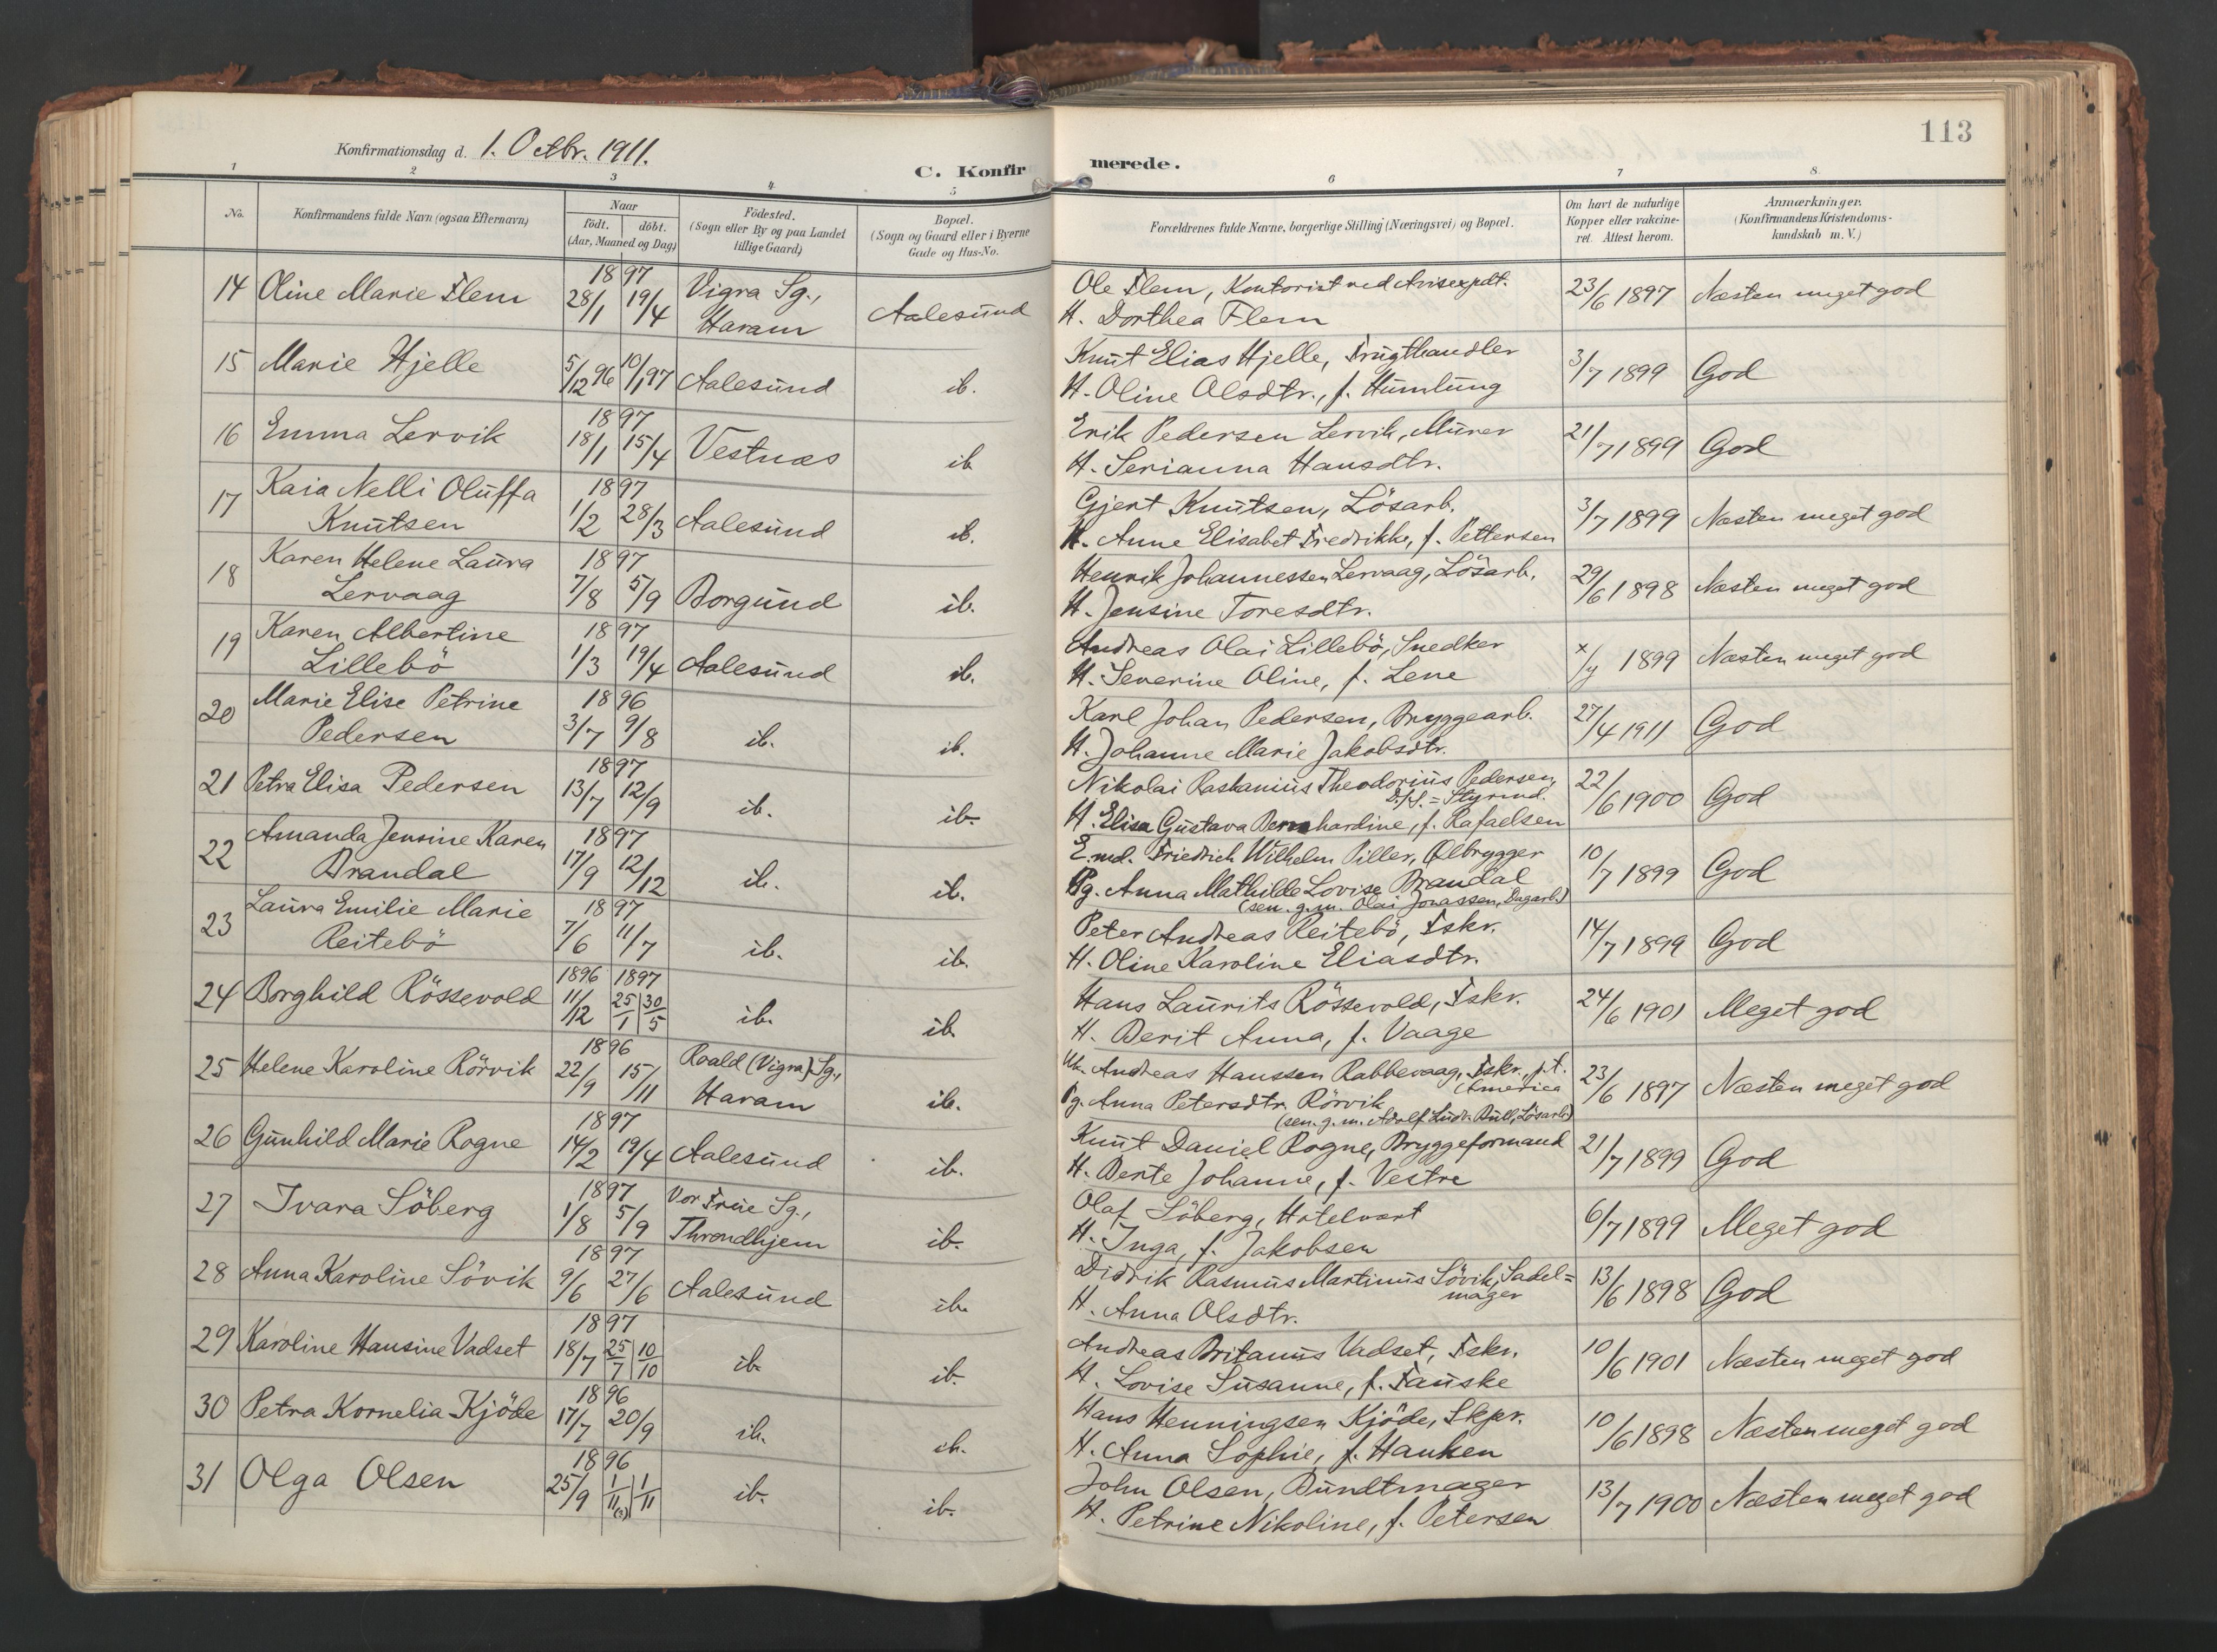 113
Konfirmationsdag d. 1. Octbr. 1911.
C. Konfirmerede.
1 2 3 4 5 6 7 8
No. Konfirmandens fulde Navn (ogsaa Efternavn) Naar födt. döbt. (Aar, Maaned og Dag) Födested. (Sogn eller By og paa Landet tillige Gaard) Bopæl. (Sogn og Gaard eller i Byerne Gade og Hus-No. Forældrenes fulde Navne, borgerlige Stilling (Næringsvei) og Bopæl. Om havt de naturlige Kopper eller vakcineret. Attest herom. Anmærkninger. (Konfirmandens Kristendomskundskab m. V.)
14 Oline Marie Flem 1897 28/1 19/4 Vigra Sg., Haram Aalesund Ole Flem, Kontorist ved Avisexpdt. 23/6 1897 Næsten meget god
H. Dorthea Flem
15 Marie Hjelle 5/12 96 10/1 97 Aalesund ib. Knut Elias Hjelle, Frugthandler 3/7 1899 God
H. Oline Olsdtr., f. Humlung
16 Emma Lervik 1897 18/1 15/4 Vestnæs ib. Erik Pedersen Lervik, Murer 21/7 1899 God
H. Serianna Hansdtr.
17 Kaia Nelli Oluffa Knutsen 1897 1/2 28/3 Aalesund ib. Gjert Knutsen, Lösarb. 3/7 1899 Næsten meget god
H. Anne Elisabet Fredrikke, f. Pettersen
18 Karen Helene Laura Lervaag 1897 7/8 5/9 Borgund ib. Henrik Johannessen Lervaag, Lösarb. 29/6 1898 Næsten meget god
H. Jensine Toresdtr.
19 Karen Albertine Lillebö 1897 1/3 19/4 Aalesund ib. Andreas Olai Lillebö, Snedker x/y 1899 Næsten meget god
H. Severine Oline, f. Lene
20 Marie Elise Petrine Pedersen 1896 3/7 9/8 ib. ib. Karl Johan Pedersen, Bryggearb. 27/4 1911 God
H. Johanne Marie Jakobsdtr.
21 Petra Elisa Pedersen 1897 13/7 12/9 ib. ib. Nikolai Raskanius Theodorius Pedersen, D./S. = Styrmd. 22/6 1900 God
H. Elisa Gustava Bernhardine, f. Rafaelsen
22 Amanda Jensine Karen Brandal 1897 17/9 12/12 ib. ib. E.md. Friedrich Wilhelm Piller, Ølbrygger 10/7 1899 God
Pg. Anna Mathilde Lovise Brandal
(sen. g.m. Olai Jonassen, Dagarb.)
23 Laura Emilie Marie Reitebö 1897 7/6 11/7 ib. ib. Peter Andreas Reitebö, Fskr. 14/7 1899 God
H. Oline Karoline Eliasdtr.
24 Borghild Rössevold 1896 1897 11/12 25/1 | 30/5 ib. ib. Hans Laurits Rössevold, Fskr. 24/6 1901 Meget god
H. Berit Anna, f. Vaage
25 Helene Karoline Rörvik 1896 22/9 15/11 Roald (Vigra) Sg., Haram ib. Uk. Andreas Hanssen Rabbevaag, Fskr., p.t. America 23/6 1897 Næsten meget god
Pg. Anna Petersdtr. Rörvik
(sen. g. m. Adolf Ludv. Bull, Lösarb.)
26 Gunhild Marie Rogne 1897 14/2 19/4 Aalesund ib. Knut Daniel Rogne, Bryggeformand 21/7 1899 God
H. Berte Johanne, f. Vestre
27 Ivara Söberg 1897 1/8 5/9 Vor Frue Sg., Throndhjem ib. Olaf Söberg, Hotelvært 6/7 1899 Meget god
H. Inga, f. Jakobsen
28 Anna Karoline Sövik 1897 9/6 27/6 Aalesund ib. Didrik Rasmus Martinus Sövik, Sadelmager 13/6 1898 God
H. Anna Olsdtr.
29 Karoline Hansine Vadset 1897 18/7 25/7 | 10/10 ib. ib. Andreas Britanus Vadset, Fskr. 10/6 1901 Næsten meget god
H. Lovise Susanne, f. Fauske
30 Petra Kornelia Kjöde 1896 17/7 20/9 ib. ib. Hans Henningsen Kjöde, Skpr. 10/6 1898 Næsten meget god
H. Anna Sophie, f. Hanken
31 Olga Olsen 1896 25/9 1/11 | 1/11 ib. ib. John Olsen, Bundtmager 13/7 1900 Næsten meget god
H. Petrine Nikoline, f. Petersen